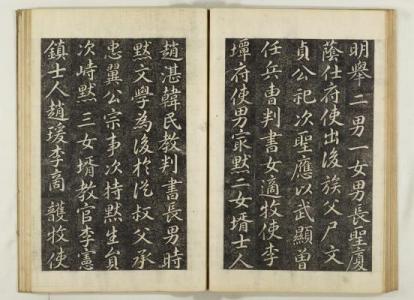 明舉二男一女男長聖廈
蔭仕府使出後族父尸文
貞公祀次聖應以武顯曽
任兵曹判書女適牧使李
墰府使男家黙二女壻士人
趙湛韓民教判書長男時
黙文學為後於從叔父承
忠翼公宗事次持黙生員
次峙黙三女壻教官李憲
鎮士人趙瑗李㝯 䕶牧使